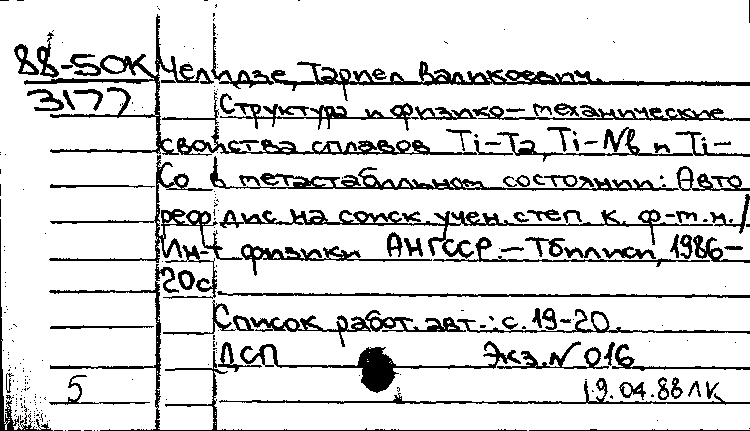 88-50К Челидзе, Тариел Валикоевич.
3177 Структура и физико-механические
свойства сплавов Ti-Ta, Ti-Nb и Ti-
Co в метастабильном состоянии: Авто
реф. дис. на соиск. учен. степ. к. ф-м.н. /
Ин-т физики АНГССР. - Тбилиси, 1986-
20с.
Список работ. авт.: с. 19-20.
ДСП Экз. N 016
5 19.04.88 ЛК